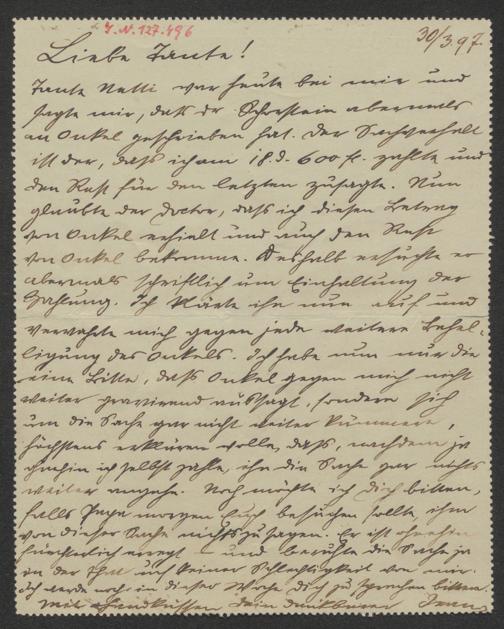 I. N. 127.496
30/3.97.
Liebe Tante!
Tante Netti war heute bei mir und
sagte mir, daß dr abermals
an Onkel geschrieben hat. Der Sachverhalt
ist der, daß ich am 18. d. 600 fr. zahlte und
den Rest für den letzten zusagte. Nun
glaubte der Doctor, daß ich diesen Betrag
von Onkel erhielt und auch den Rest
von Onkel bekomme. Deshalb ersuchte er
abermals schriftlich um Einhaltung der
Zahlung. Ich klärte ihn nun auf und
verwahrte mich gegen jede weitere Behel-
ligung des Onkels. Ich habe nun nur die
eine Bitte, daß Onkel gegen mich nicht
weiter gravirend aussagt, sondern sich
um die Sache gar nicht weiter kümmere,
höchstens erklären wolle, daß, nachdem ja
ohnehin ich selbst zahle, ihn die Sache gar nichts
weiter angehe. Noch möchte ich dich bitten,
falls Papa morgen Euch besuchen sollte ihm
von dieser Sache nichts zu sagen. Er ist ohnehin
fürchterlich erregt – und beruhte die Sache ja
in der That auf keiner Schlechtigkeit von mir.
Ich werde noch in dieser Woche dich zu sprechen bitten.
Mit Handküssen dein dankbarer